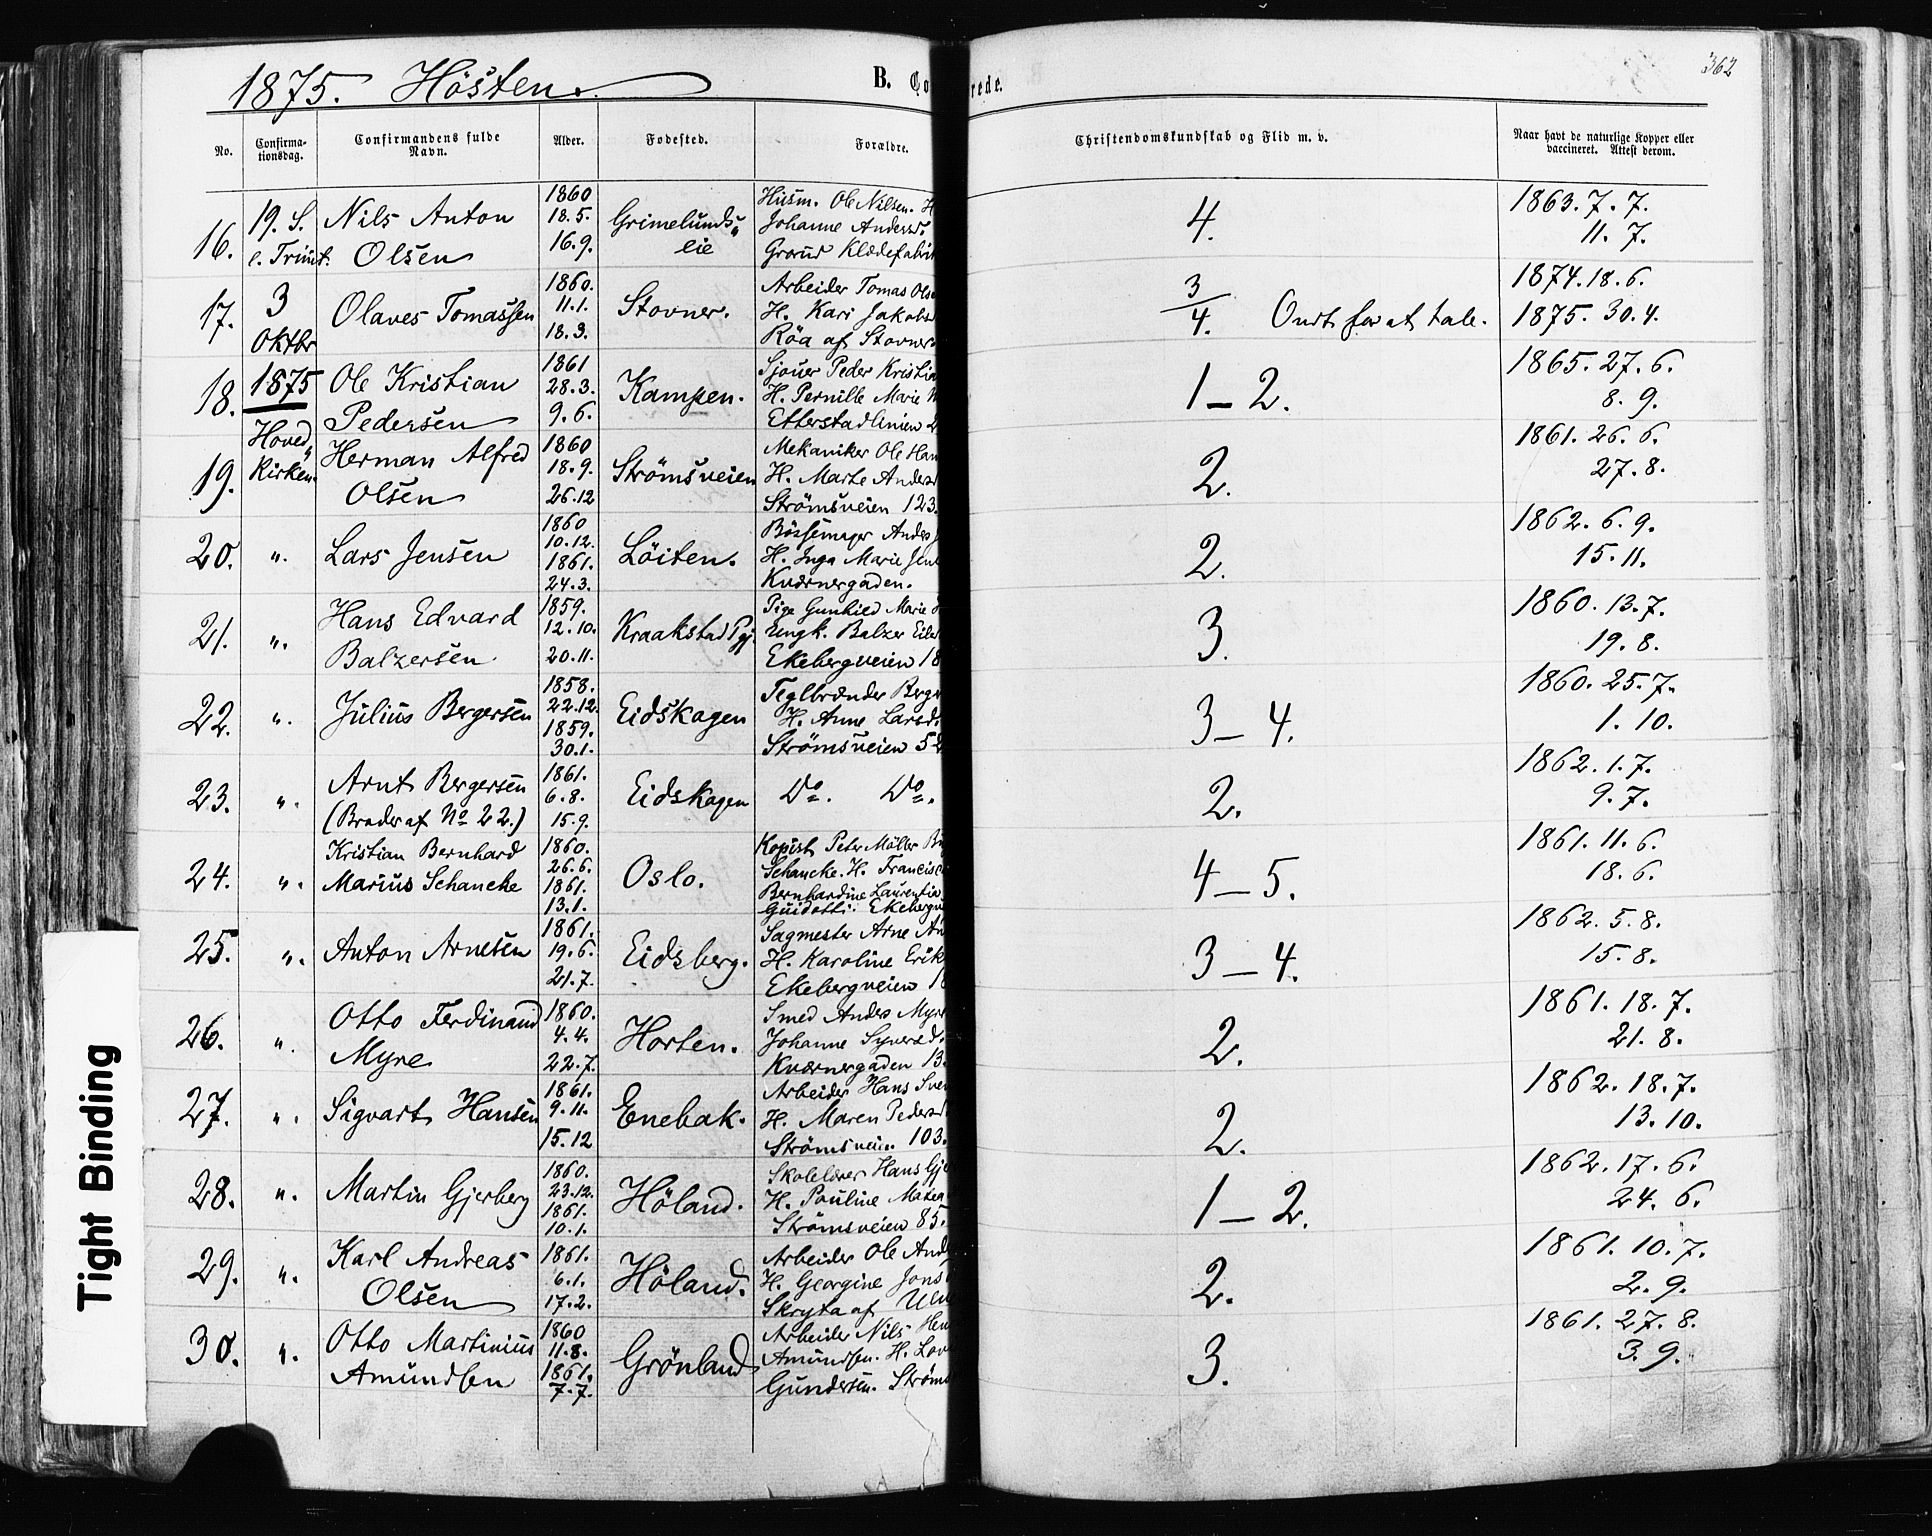 362
1875. Hösten.
B. Co
rede.
No.
Confirma-
tionsdag.
Confirmandens fulde
Navn.
Alder.
Fødested.
Forældre.
Christendomskundskab og Flid m. v.
Naar havt de naturlige Kopper eller
vaccineret. Attest derom.
16.
19. S.
e. Trinit.
Nils Anton
Olsen
1860
18.5.
16.9.
Grimelunds„
eie
Husm. Ole Nilsen. H
Johanne Andersd.
Grorud Klædefabrik
4.
1863. 7. 7.
11. 7.
17.
3
Oktbr
Olaves Tomassen
1860.
11.1.
18.3.
Stovner.
Arbeider Tomas Ols
H. Kari Jakobsd
Röa af Stovner
3
4. Ondt for at tale.
1874. 18. 6.
1875. 30. 4.
18.
1875
Ole Kristian
Pedersen
1861
28.3.
9.6.
Kampen.
Sjouer Peder Kristia
H. Pernille Marie
Etterstadlinien 2
1–2.
1865. 27. 6.
8. 9.
19.
Hoved„
Kirken.
Herman Alfred
Olsen
1860
18.9.
26.12
Strömsveien
Mekaniker Ole Han
H. Marte Anders
Strömsveien 123.
2.
1861. 26. 6.
27. 8.
20.
„.
Lars Jensen
1860
10.12.
1861.
24.3.
Löiten.
Bössemager Anders
H. Inga Marie Jen
Kværnergaden.
2.
1862. 6. 9.
15. 11.
21.
„.
Hans Edvard
Balzersen
1859.
12.10.
20.11.
Kraakstad Pgj.
Pige Gunhild Marie
Ungk. Balzer Eile
Ekebergveien 18
3.
1860. 13. 7.
19. 8.
22.
„.
Julius Bergersen
1858.
22.12.
1859.
30.1.
Eidskogen
Teglbrænder Berger
H. Anne Larsd.
Strömsveien 5
3–4.
1860. 25. 7.
1. 10.
23.
„.
Arnt Bergersen
(Broder af No 22.)
1861.
6.8.
15.9.
Eidskogen
Do. Do.
2.
1862. 1. 7.
9. 7.
24.
„.
Kristian Bernhard
Marius Schancke
1860.
26.6.
1861.
13.1.
Oslo.
Kopist Peter Möller
Schancke. H. Francisc
Bernhardine Laurentia
Guidotti. Ekebergv
4–5.
1861. 11. 6.
18. 6.
25.
„.
Anton Arnesen
1861.
19.6.
21.7.
Eidsberg.
Sagmester Arne An
H. Karoline Erik
Ekebergveien 1
3–4.
1862. 5. 8.
15. 8.
26.
„.
Otto Ferdinand
Myre
1860.
4.4.
22.7.
Horten.
Smed Anders Myr
Johanne Syversd.
Kværnergaden 13.
2.
1861. 18. 7.
21. 8.
27.
„.
Sigvart Hansen
1861.
9.11.
15.12
Enebak.
Arbeider Hans Sve
H. Maren Pedersd
Strömsveien. 103.
2.
1862. 18. 7.
13. 10.
28.
„.
Martin Gjerberg
1860.
23.12.
1861.
10.1.
Höland.
Skolelærer Hans Gje
H. Pauline
Strömsveien 85.
1–2.
1862. 17. 6.
24. 6.
29.
„.
Karl Andreas
Olsen
1861.
6.1.
17.2.
Höland.
Arbeider Ole And
H. Georgine Jons
Skryta af Ulv
2.
1861. 10. 7.
2. 9.
30.
„.
Otto Martinius
Amundsen
1860
11.8.
1861.
7.7.
Grönland
Arbeider Nils Hen
Amundsen. H. Lov
Gundersen. Ströms
3.
1861. 27. 8.
3. 9.
Tight Binding